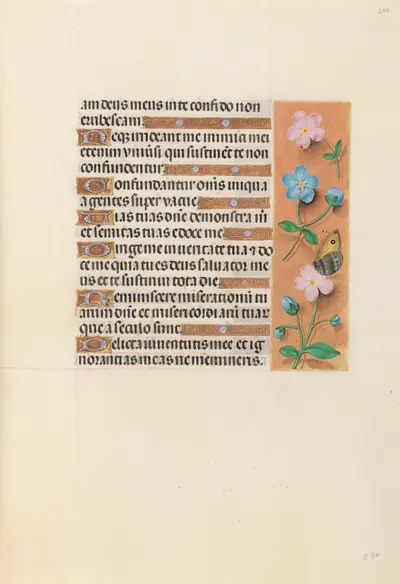 am deus meus in te confido non
erubescam.
Neq₃ irrideant me inimici mei
etenim vniuersi qui sustinēt te non
confundentur.
Confundantur om̄s iniqua
agentes super vacue.
Uias tuas dn̄e demonstra m̄
et semitas tuas edoce me.
Dirige me in veritate tua ⁊ do
ce me quia tu es deus saluator me
us et te sustinui tota die.
Reminiscere miserationū tu
arum dn̄e et misericordiarū tuar̄
que a seculo sunt.
Delicta iuuentutis mee et ig
norantias meas ne memineris.